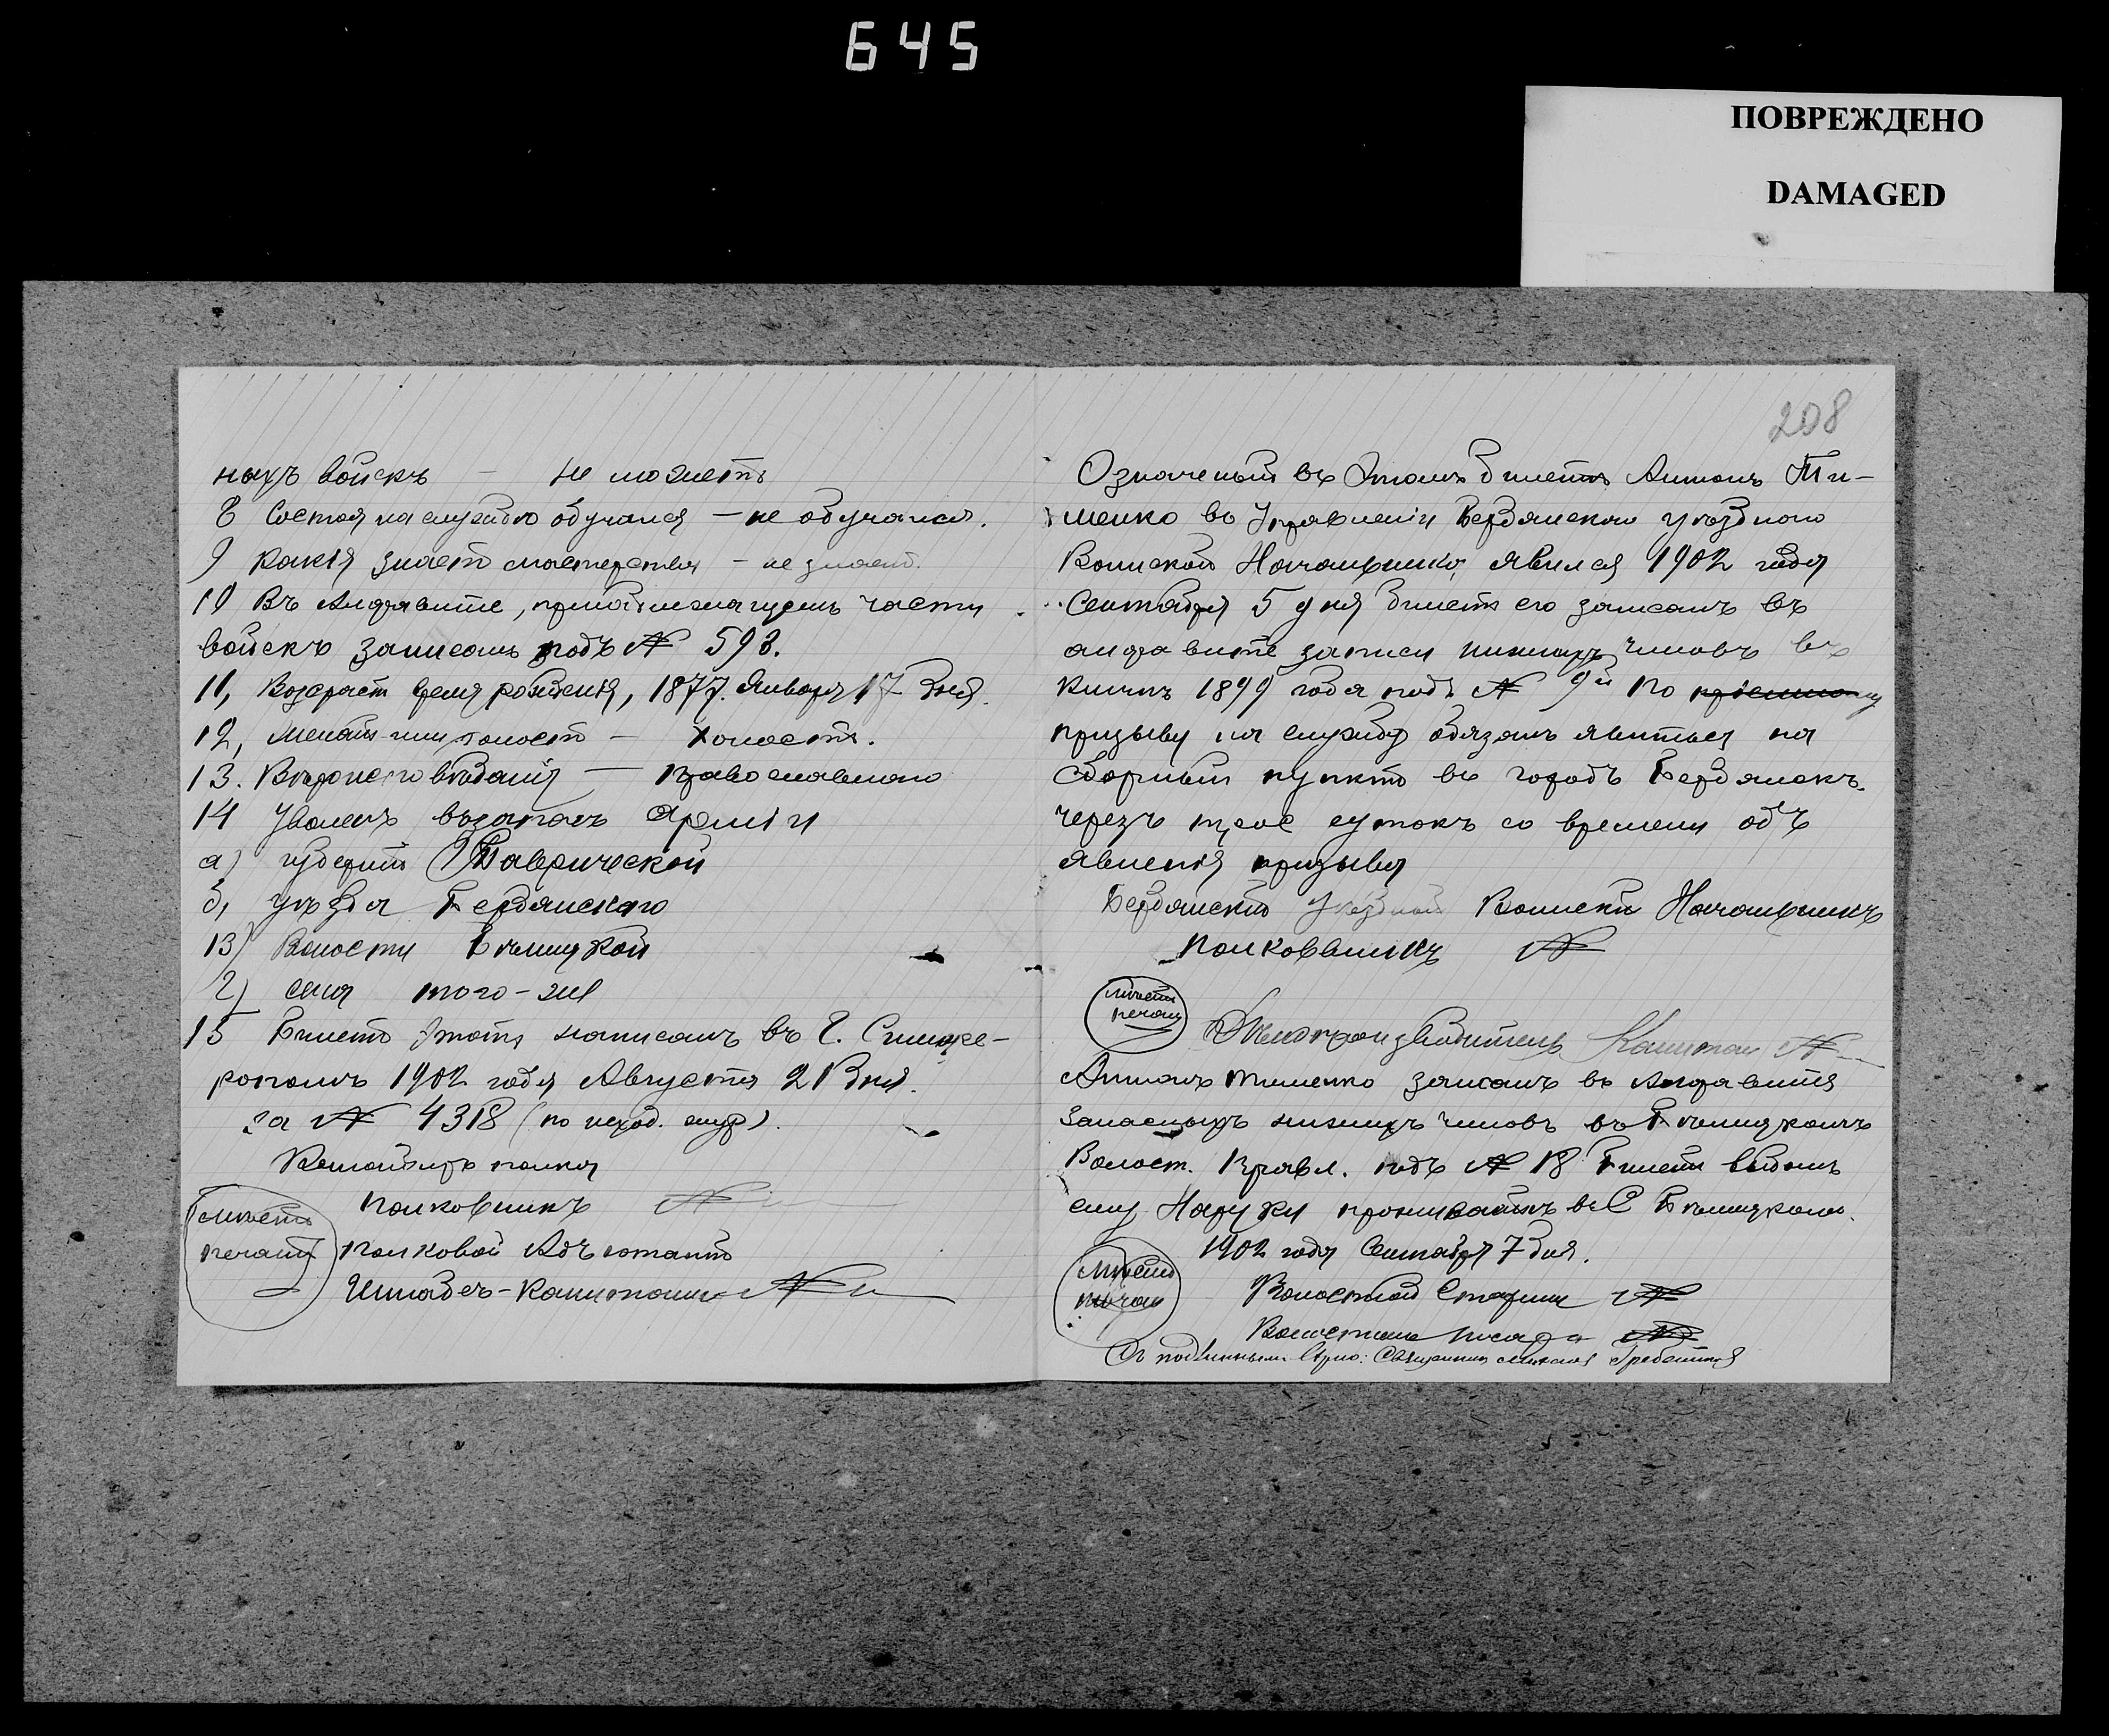 645
ПОВРЕЖДЕНО
DAMAGED
208
ныхъ войскъ – не можетъ
8 Состоя на службѣ обучался – не обучался.
9 какія знаетъ мастерства – не знаетъ.
10 Въ Алфавите, части
войскъ записанъ подъ № 593.
11, Возрастъ время рожденія, 1877. Января 17 дня.
12, Женатъ или холостъ – холостъ.
13. Вѣроисповѣданія – православнаго
14 Уволенъ въ запасъ Арміи
а) губерніи Таврической
б, уѣзда Бердянскаго
в) Волости
г) села того-же
15 Билетъ этотъ написанъ въ Г. Симфе-
рополь 1902 года Августа 21 дня.
за № 4318 (по исход. жур).
Командиръ полка
Полковникъ N
Мѣсто
печати
Полковой Адъютантъ
Штабсъ-Капитанъ N
Означеный въ этомъ билетѣ Антонъ Ти-
менко въ Управленіи Бердянскаго уѣзднаго
Воинской Начальника, явился 1902 года
Сентября 5 дня билетъ его записанъ въ
алфавите записи нижнихъ чиновъ въ
1899 года подъ № 9й по
призыву на службу обязанъ явиться на
сборный пунктъ въ городъ Бердянскъ.
черезъ трое сутокъ со времени объ
явленія призыва
Бердянскій Уѣздный Воинскій Начальникъ
Полковникъ N
Мѣсто
печати
Дѣлопроизводитель Капитан N
Антонъ Тименко записанъ въ Алфавите
Запасныхъ нижнихъ чиновъ въ
Волост. Правл. подъ № 18 Билетъ выданъ
ему На руки въ С
1902 года Сентября 7 дня.
Мѣсто
печати
Волостной Старшина N
Волостной писарь N
Съ подлиннымъ вѣрно: Священникъ